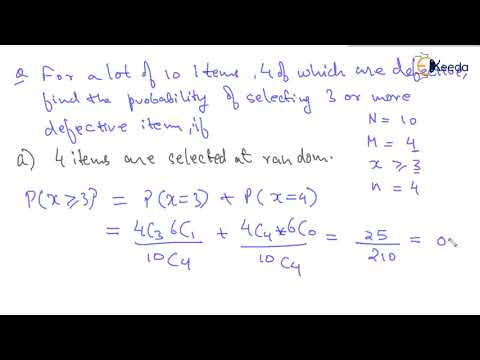 Ekeeda
Q For a lot of 10 Items, 4 of which are defective,
find the probability of selecting 3 or more
defective item, if
N = 10
M = 4
a) 4 items are selected at random.
x ≥ 3
n = 4
P(x≥3) = P(x=3) + P(x=4)
= 4C3 6C1 / 10C4 + 4C4 * 6C0 / 10C4 = 25 / 210 = 0